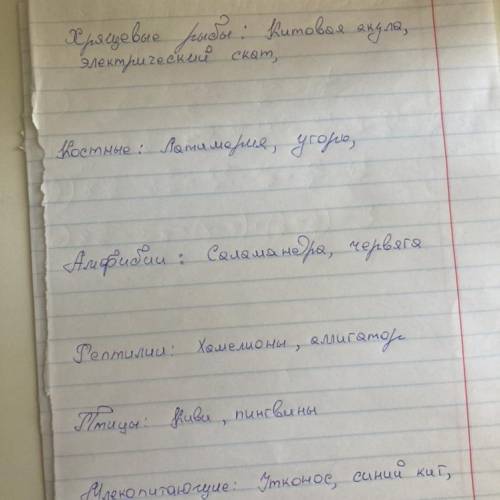 Хрящевые рыбы: Китовая акула,
электрический скат,
Костные: Латимерия, угорь,
Амфибии: Саламандра, червяга
Рептилии: Хамелионы, аллигатор
Птицы: Киви, пингвины
Млекопитающие: Утконос, синий кит,